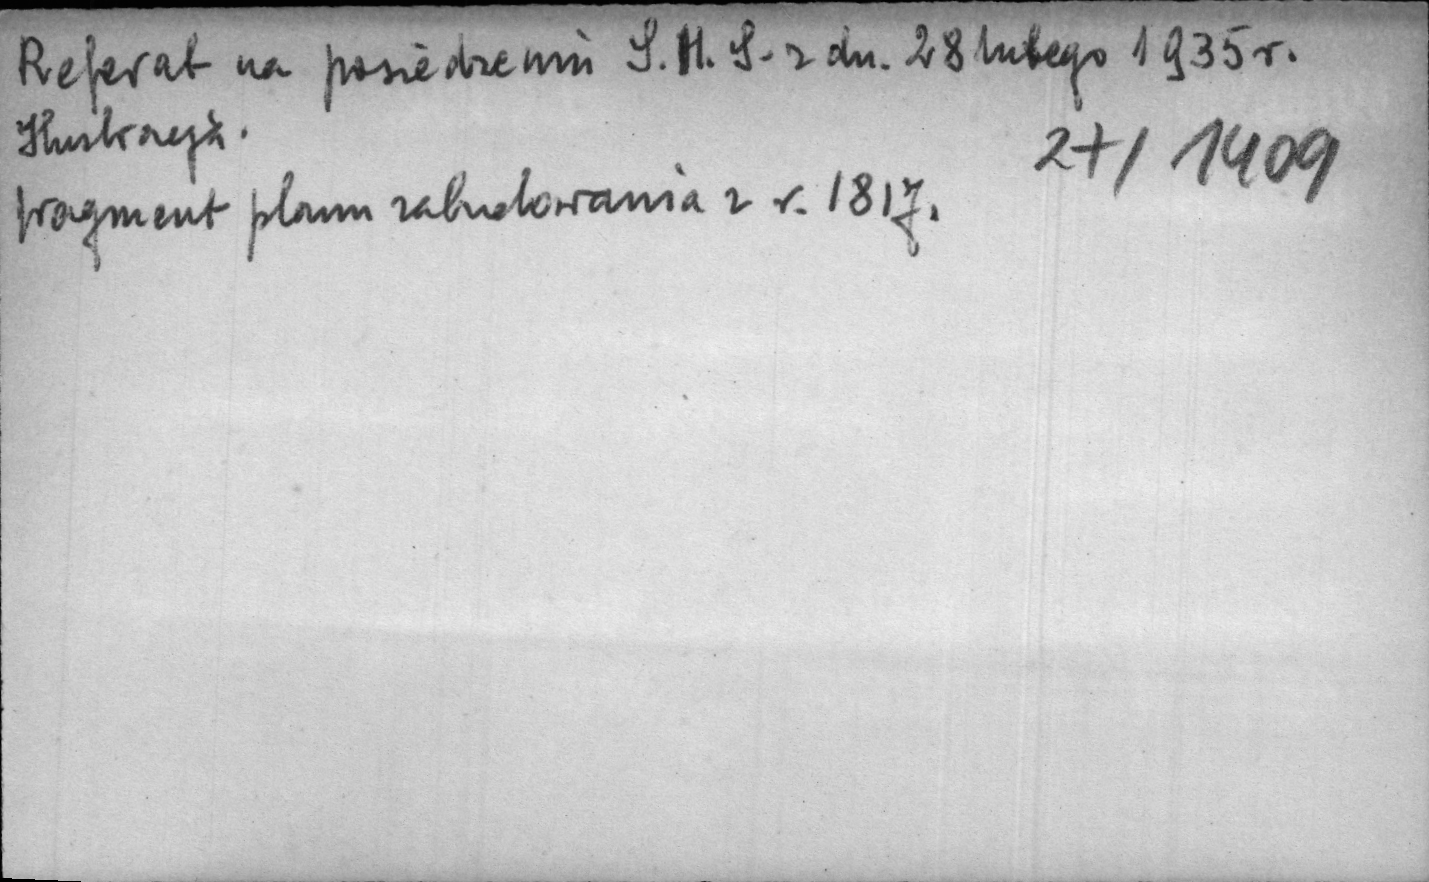 Referat na posiedzeniu S. H. S. z dn. 28 lutego 1935 r.
Ilustracja.
27/ 1409
fragment planu zabudowania z r. 1817.